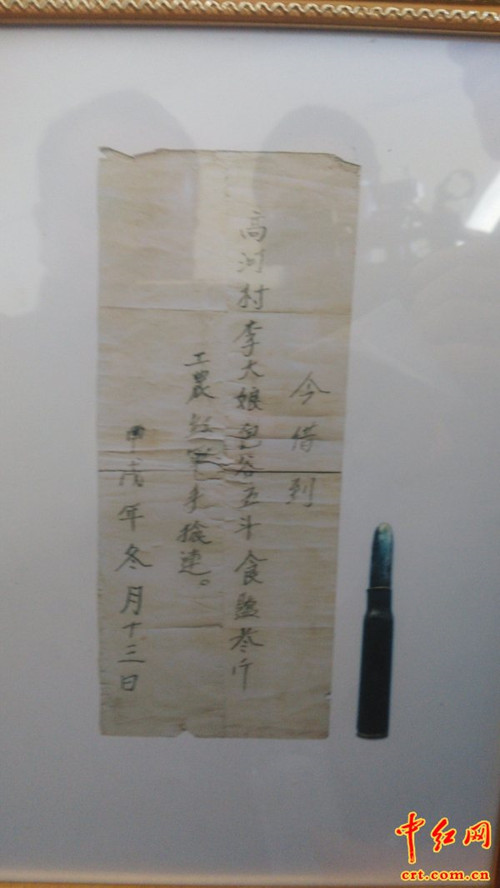 今借到
高河村李大娘包谷五斗食盐叁斤
工农红军手枪连。
甲戌年冬月十三日
中红网
crt.com.cn